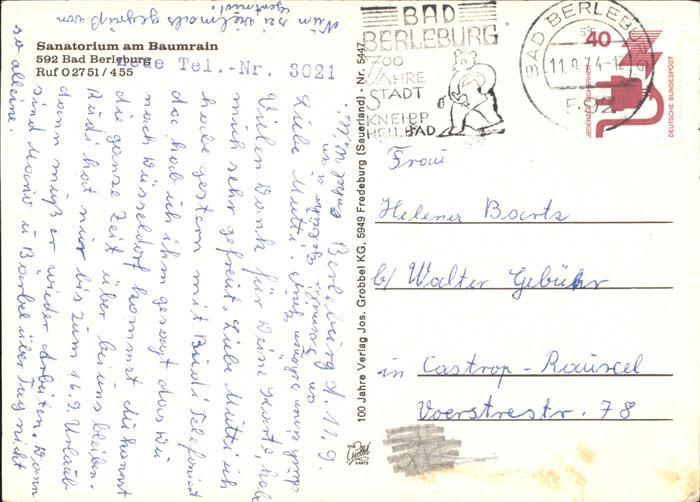 Sanatorium am Baumrain
592 Bad Berleburg
Ruf 0 27 51 / 455
neue Tel.-Nr. 3021
BAD
BERLEBURG
700
JAHRE
STADT
KNEIPP
HEILBAD
BAD BERLEBURG
11.9.74-12
592
40
JEDERZEIT SICHERHEIT
DEUTSCHE BUNDESPOST
100 Jahre Verlag Jos. Grobbel KG, 5949 Fredeburg (Sauerland) - Nr. 5447
EINE
Grobbel
KARTE
Frau
Helena Bartz
b/ Walter Gebühr
in Castrop-Rauxel
Voerstrestr. 78
Berleburg d. 11.9.
Liebe Mutti.
Vielen Dank für Deine Karte, habe
mich sehr gefreut. Liebe Mutti ich
habe gestern mit Rudi Telefoniert
da hab ich ihm gesagt das Du
nach Düsseldorf kommst du kannst
die ganze Zeit über bei uns bleiben.
Rudi hat nur bis zum 16.9. Urlaub
dann muß er wieder Arbeiten. Dann
sind Mario u Bärbel über Tag nicht
so alleine.
Nun sei vielmals gegrüßt von